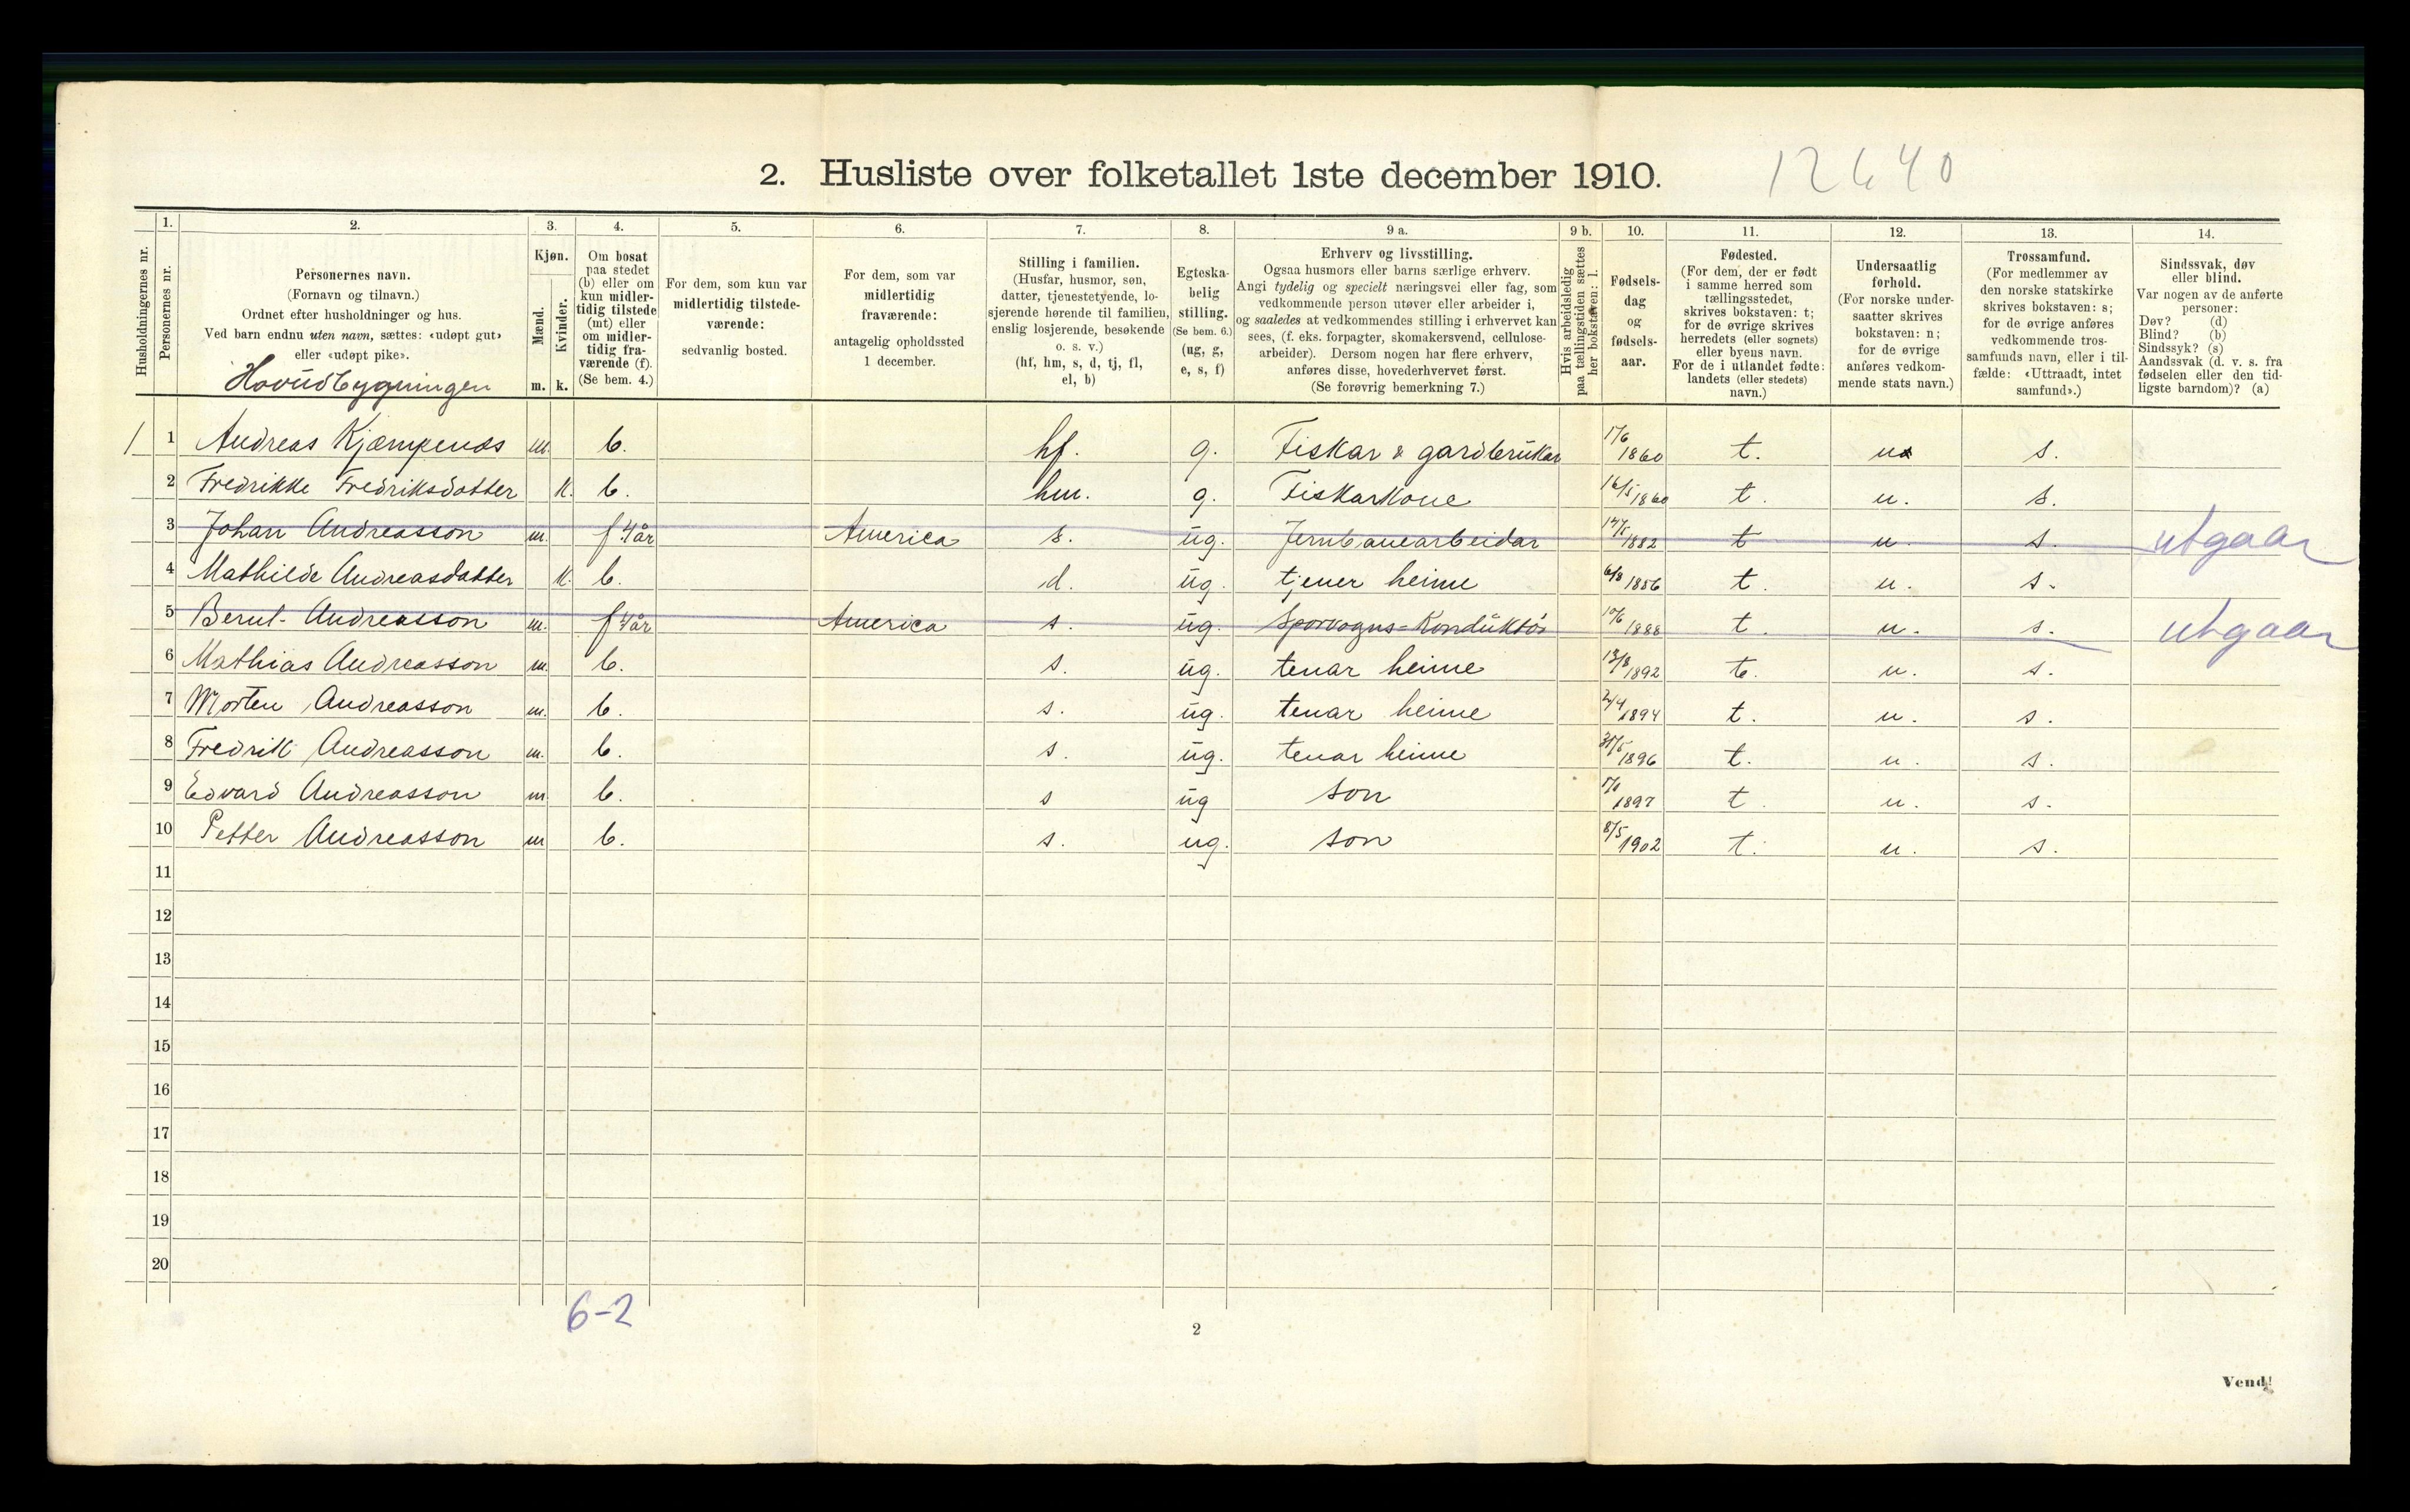 2. Husliste over folketallet 1ste december 1910.
12640
Husholdningernes nr.
1. Personernes nr.
2. Personernes navn.
(Fornavn og tilnavn.)
Ordnet efter husholdninger og hus.
Ved barn endnu uten navn, sættes: «udøpt gut»
eller «udøpt pike».
Hovudbygningen
3. Kjøn.
Mænd. m.
Kvinder. k.
4. Om bosat
paa stedet
(b) eller om
kun midler-
tidig tilstede
(mt) eller
om midler-
tidig fra-
værende (f).
(Se bem. 4.)
5. For dem, som kun var
midlertidig tilstede-
værende:
sedvanlig bosted.
6. For dem, som var
midlertidig
fraværende:
antagelig opholdssted
1 december.
7. Stilling i familien.
(Husfar, husmor, søn,
datter, tjenestetyende, lo-
sjerende hørende til familien,
enslig losjerende, besøkende
o. s. v.)
(hf, hm, s, d, tj, fl,
el, b)
8. Egteska-
belig
stilling.
(Se bem. 6.)
(ug, g,
e, s, f)
9 a. Erhverv og livsstilling.
Ogsaa husmors eller barns særlige erhverv.
Angi tydelig og specielt næringsvei eller fag, som
vedkommende person utøver eller arbeider i,
og saaledes at vedkommendes stilling i erhvervet kan
sees, (f. eks. forpagter, skomakersvend, cellulose-
arbeider). Dersom nogen har flere erhverv,
anføres disse, hovederhvervet først.
(Se forøvrig bemerkning 7.)
9 b. Hvis arbeidsledig
paa tællingstiden sættes
her bokstaven: l.
10. Fødsels-
dag
og
fødsels-
aar.
11. Fødested.
(For dem, der er født
i samme herred som
tællingsstedet,
skrives bokstaven: t;
for de øvrige skrives
herredets (eller sognets)
eller byens navn.
For de i utlandet fødte:
landets (eller stedets)
navn.)
12. Undersaatlig
forhold.
(For norske under-
saatter skrives
bokstaven: n;
for de øvrige
anføres vedkom-
mende stats navn.)
13. Trossamfund.
(For medlemmer av
den norske statskirke
skrives bokstaven: s;
for de øvrige anføres
vedkommende tros-
samfunds navn, eller i til-
fælde: «Uttraadt, intet
samfund».)
14. Sindssvak, døv
eller blind.
Var nogen av de anførte
personer:
Døv? (d)
Blind? (b)
Sindssyk? (s)
Aandssvak (d. v. s. fra
fødselen eller den tid-
ligste barndom)? (a)
1 1 Andreas Kjæmpenes m. b. hf. g. Fiskar & gardbrukar 17/6 1860 t. n s.
2 Fredrikke Fredriksdatter k. b. hm. g. Fiskarkone 16/5 1860 t. n. s.
3 Johan Andreasson m. f 4 år America s. ug. Jernbanearbeidar 1882 t n. s. utgaar
4 Mathilde Andreasdatter k. b. d. ug. tjener heime 6/8 1886 t. n. s.
5 Bernt Andreasson m. f 4 år America s. ug. Sporvogns-Konduktør 10/6 1888 t. n. s. utgaar
6 Mathias Andreasson m. b. s. ug. tenar heime 13/8 1892 t. n. s.
7 Morten Andreasson m. b. s. ug. tenar heime 2/4 1894 t. n. s.
8 Fredrik Andreasson m. b. s. ug. tenar heime 31/5 1896 t. n. s.
9 Edvard Andreasson m b. s ug son 1897 t. n. s.
10 Petter Andreasson m b. s. ug. son 8/5 1902 t. n. s.
11
12
13
14
15
16
17
18
19
20
6-2
2
Vend!